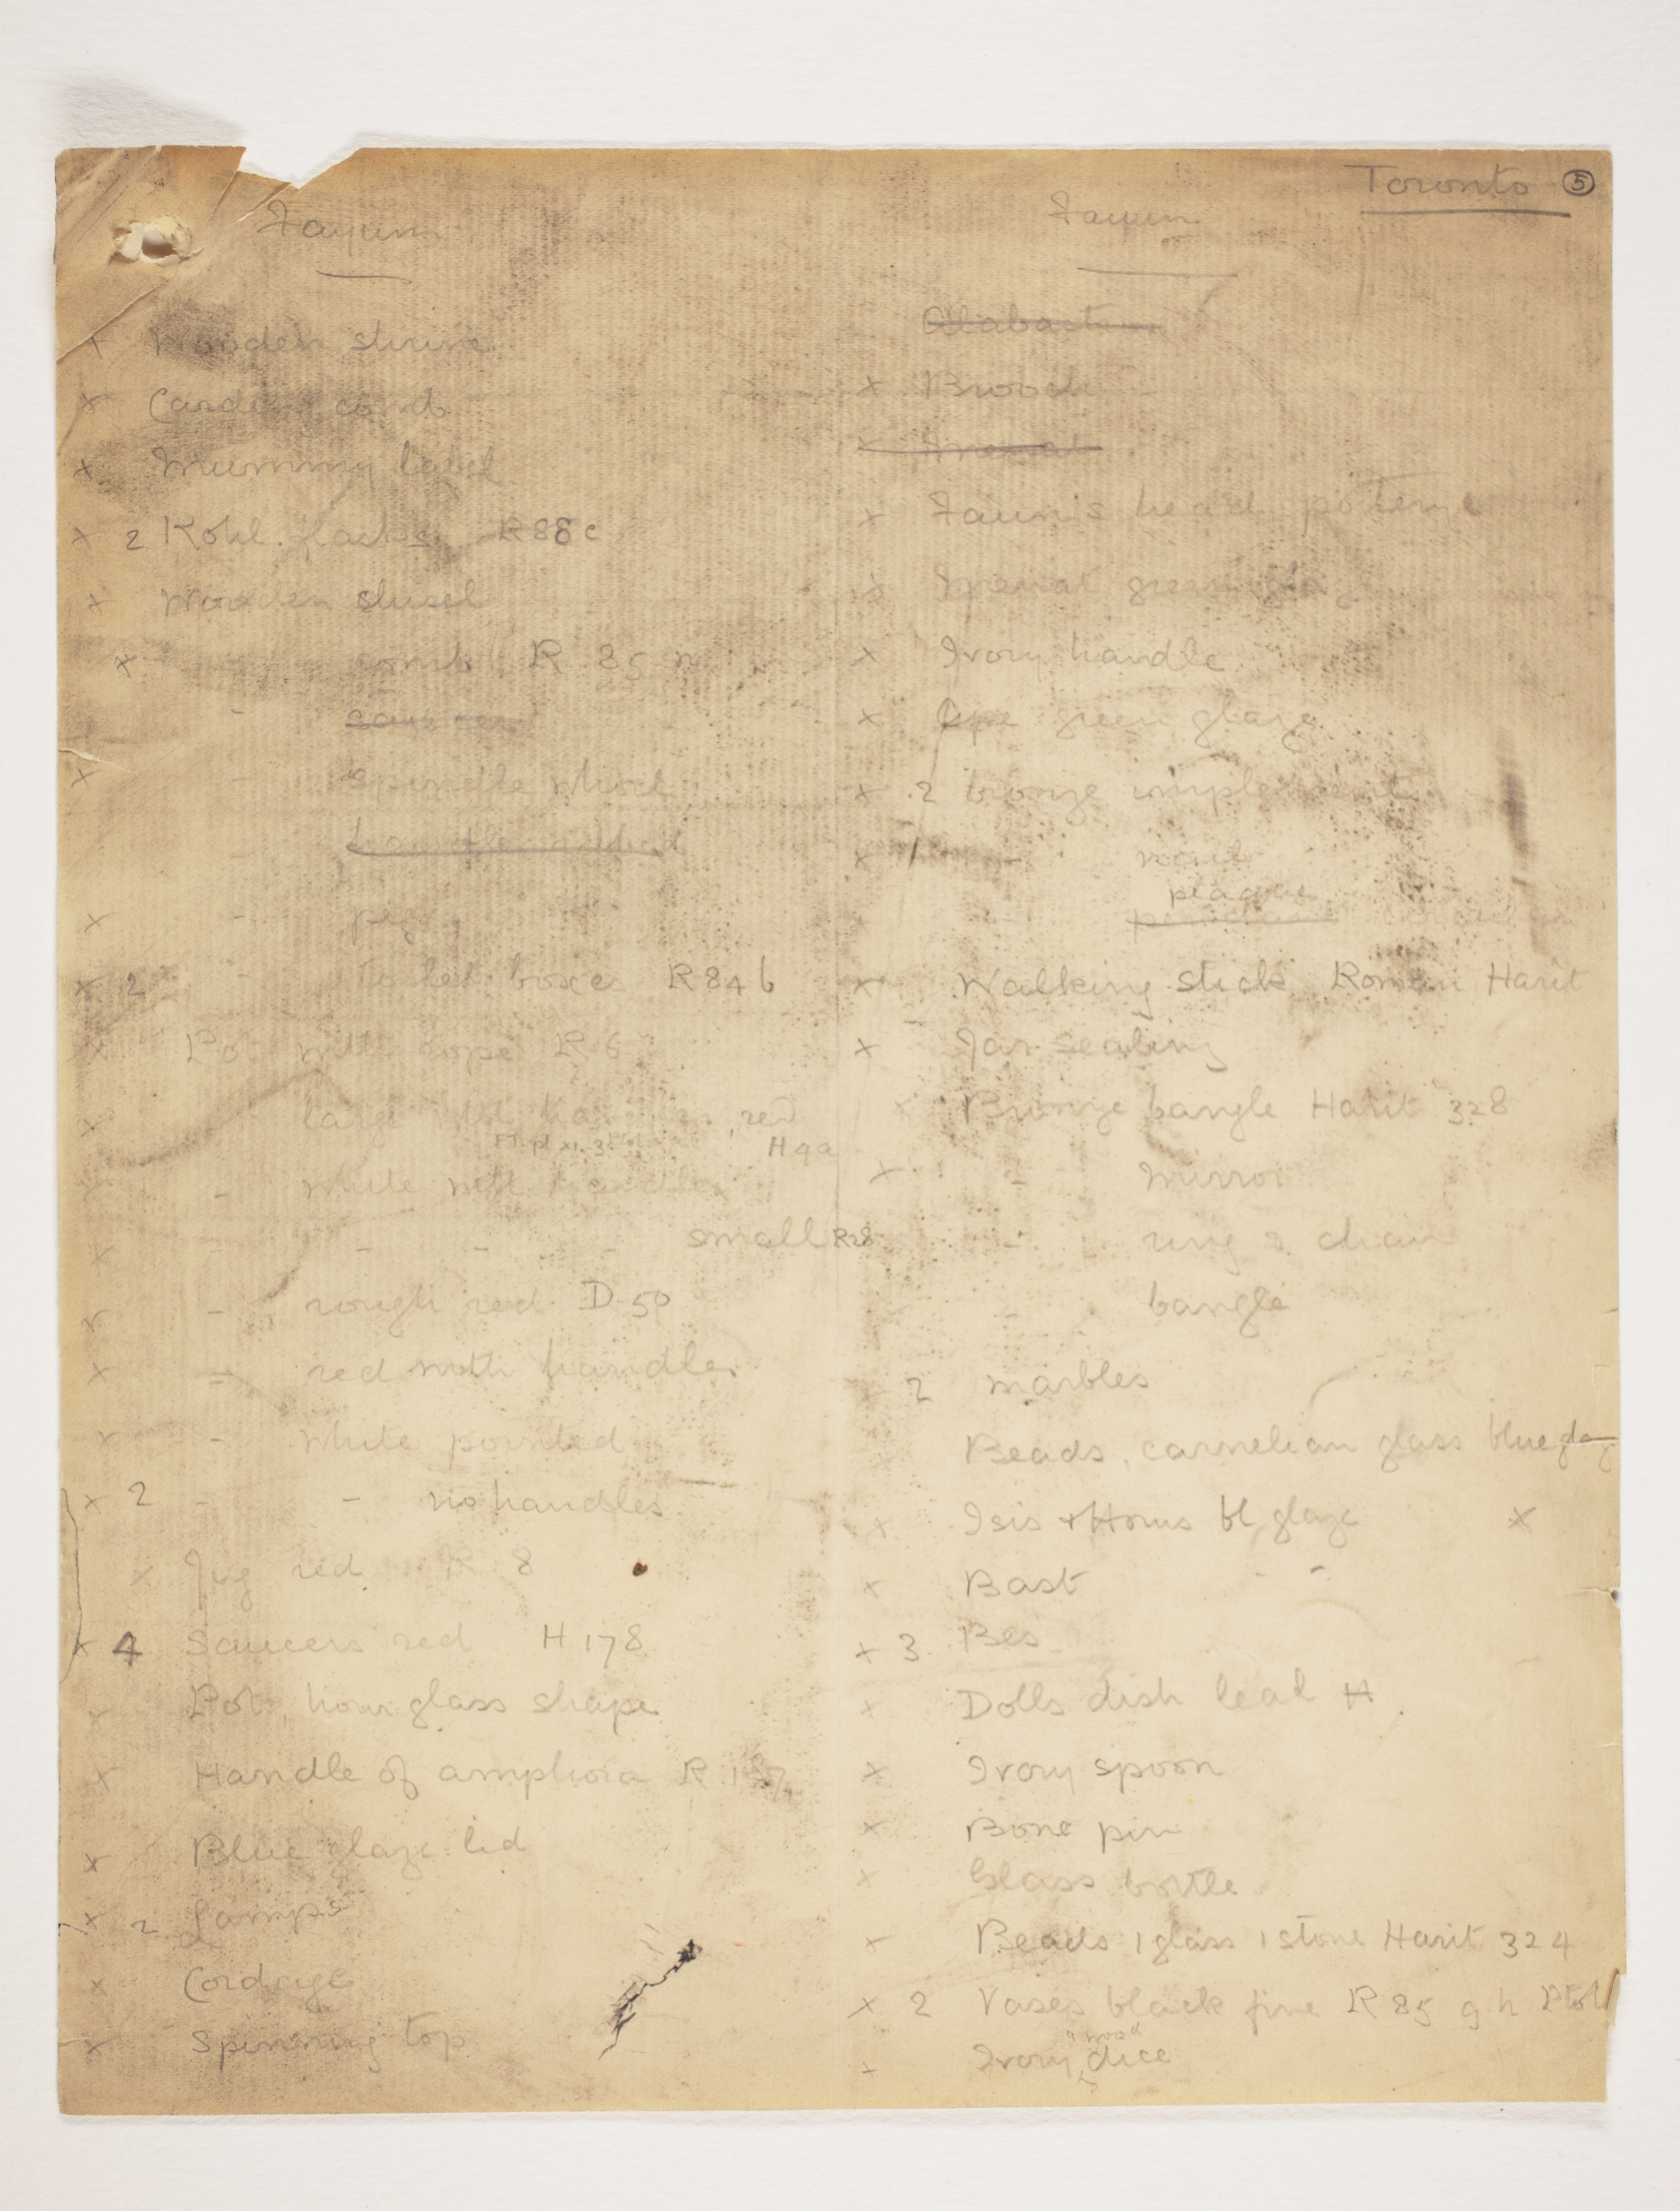 Toronto ⑤
Fayum
x Wooden shrine
x Carding comb
x Mummy label
x 2 Kohl R88c
x Wooden
x comb R 85 n
- saucer
x - Spindle whorl
-
x - peg
x 2 - toilet boxes R84b
x Pot with rope R 6
x large red
H4a
x - white with handle
x - - - - small R28
x - rough red D 50
x - red with handles
x - white pointed
x 2 - - no handles
x Jug red R 8
x 4 Saucers red H 178
x Pot, hour glass shape
x Handle of amphora R
x Blue glaze lid
x 2 Lamps
x Cordage
x Spinning top
Fayum
Alabastron
x Brooch
x Menat
x Faun's head
x Menat green glaze
x Ivory handle
x Ape green glaze
x 2 bronze implements
x 1 -
plaque
x Walking stick Roman Harit
x Jar sealing
x Bronze bangle Harit 328
x - Mirror
- ring & chain
- bangle
x 2 marbles
x Beads, carnelian glass blue
x Isis & Horus bl glaze x
x Bast - -
x 3 Bes
x Dolls dish lead H.
x Ivory spoon
x Bone pin
x Glass bottle
x Beads 1 glass 1 stone Harit 324
x 2 Vases black fine R 85 g h Ptol
x Ivory dice